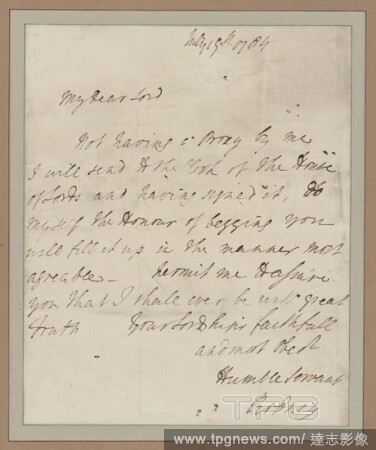 My Dear Lord
Not having a Proxy by me
I will send to the Clerk of the House
of Lords and having signed it, do
myself the Honour of begging you
will fill it up in the manner most
agreable - permit me to assure
you that I shall ever be with great
truth Your Lordships faithfull
and most Obed
Humble Servant
Rodney
TPG
www.tpgnews.com / 達志影像